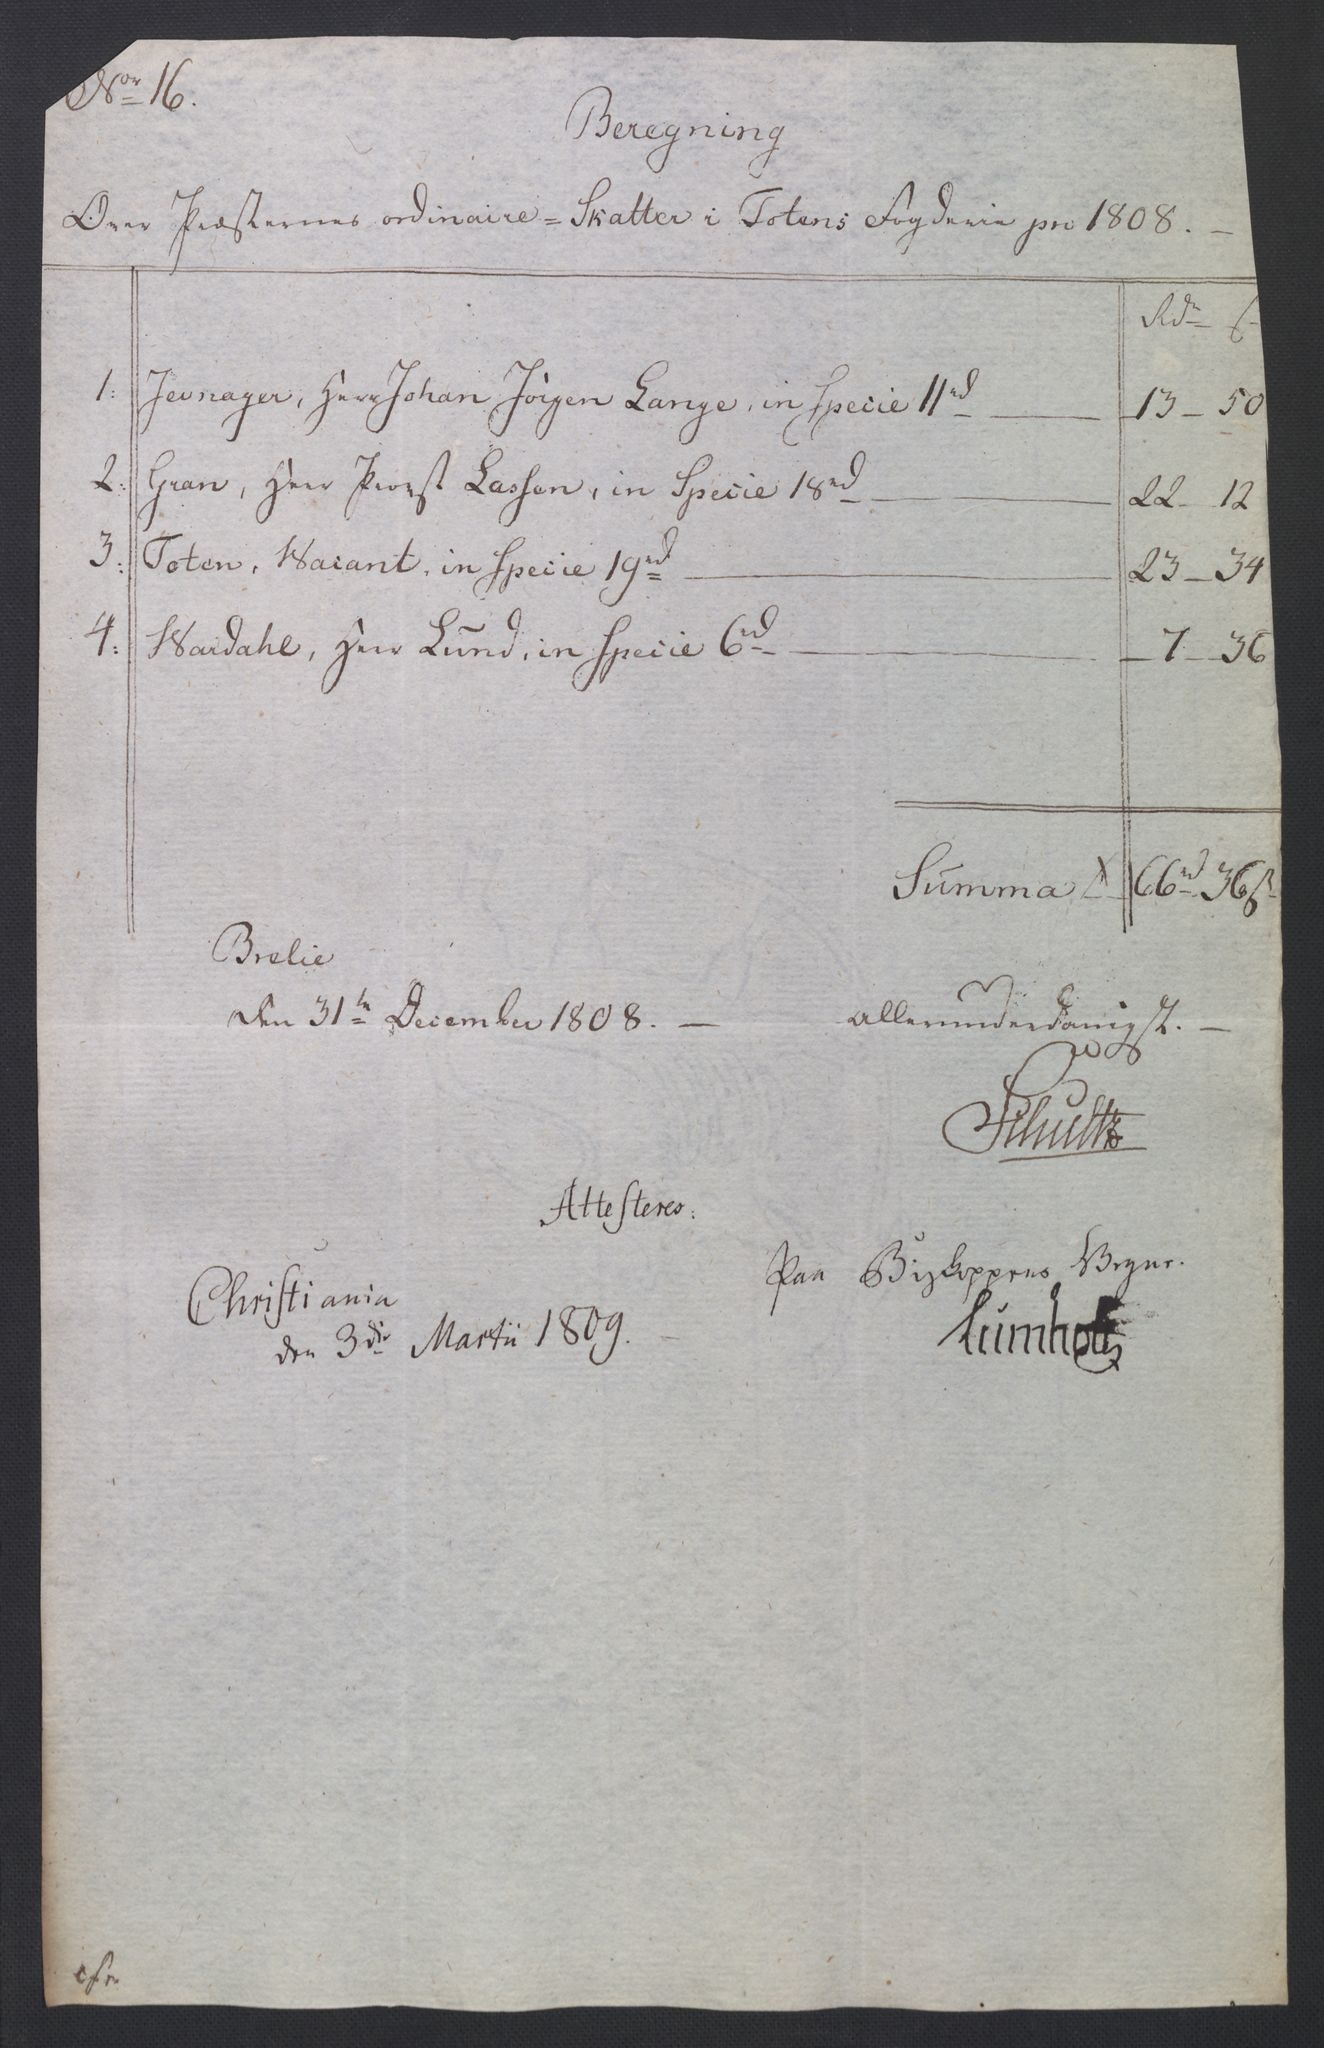 Nor 16.
Beregning
Over Præsternes ordinaire = Skatter i Totens Fogderie pro 1808. —
Rdr ß
1: Jevnager, Herr Johan Jörgen Lange, in Specie 11rd — 13 - 50
2: Gran, Herr Provst Lassen, in Specie 18rd — 22 - 12
3: Toten, Vacant, in Specie 19rd — 23 - 34
4: Wardahl, Herr Lund, in Specie 6rd — 7 - 36
Summa 66rd 36ß
Brelie
den 31te December 1808. — allerunderdanigst. —
Schultz
Attesteres.
Christiania
den 3die Martii 1809.
Paa Biskoppens Vegne.
Lumholtz
cfr